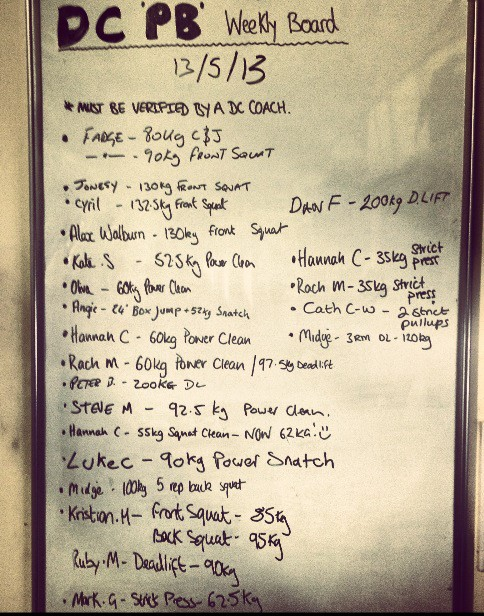 DC 'PB' Weekly Board
13/5/13
* MUST BE VERIFIED BY A DC COACH.
• FADGE - 80kg C&J
— • — - 90kg FRONT SQUAT
• JONESY - 130kg FRONT SQUAT
• Cyril - 132.5kg Front Squat
• Alax Walburn - 130kg Front Squat
• Kate S - 52.5kg Power Clean
• Olwa - 60kg Power Clean
• Angie - 24" Box Jump + 52kg Snatch
• Hannah C - 60kg Power Clean
• Rach M - 60kg Power Clean / 97.5kg Deadlift
• PETER D. - 200KG DL
• STEVE M - 92.5 kg Power Clean.
• Hannah C - 55kg Squat Clean - NOW 62KG!
• Luke C - 90kg Power Snatch
• Midge - 100kg 5 rep back squat
• Kristian.H - Front Squat - 85kg
Back Squat - 95kg
Ruby.M - Deadlift - 90kg
• Mark.G - Strict Press - 62.5kg
DAN F - 200kg D.LIFT
• Hannah C - 35kg Strict press
• Rach M - 35kg Strict press
• Cath C-W - 2 strict pullups
• Midge - 3RM DL - 120kg